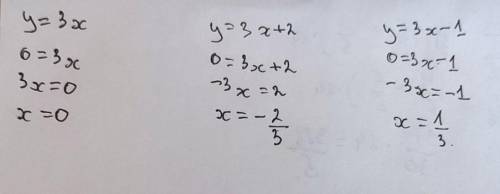 y = 3x
0 = 3x
3x = 0
x = 0
y = 3x + 2
0 = 3x + 2
-3x = 2
x = - 2/3
y = 3x - 1
0 = 3x - 1
-3x = -1
x = 1/3.